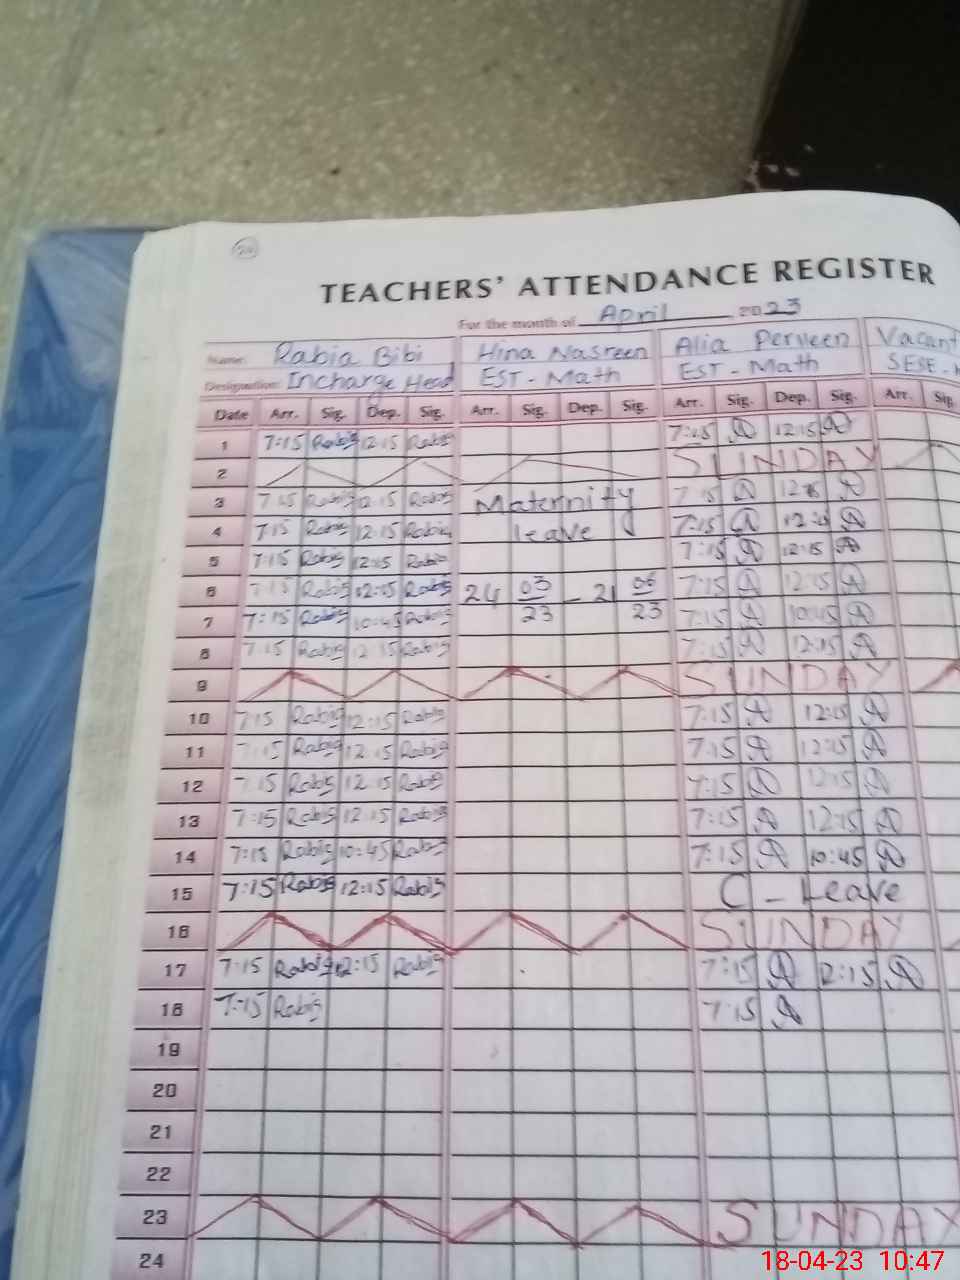 TEACHERS' ATTENDANCE REGISTER
For the month of April 2023
Name: Rabia Bibi Hina Nasreen Alia Perveen Vacant
Designation: Incharge Head EST - Math EST - Math SESE -
Date Arr. Sig. Dep. Sig. Arr. Sig. Dep. Sig. Arr. Sig. Dep. Sig. Arr. Sig.
1 7:15 Rabia 12:15 Rabia 7:15 A 12:15 A
2 SUNDAY
3 7:15 Rabia 12:15 Rabia Maternity 7:15 A 12:15 A
4 7:15 Rabia 12:15 Rabia leave 7:15 A 12:15 A
5 7:15 Rabia 12:15 Rabia 7:15 A 12:15 A
6 7:15 Rabia 12:15 Rabia 24 03 - 21 06 7:15 A 12:15 A
7 7:15 Rabia 10:45 Rabia 23 23 7:15 A 10:45 A
8 7:15 Rabia 12:15 Rabia 7:15 A 12:15 A
9 SUNDAY
10 7:15 Rabia 12:15 Rabia 7:15 A 12:15 A
11 7:15 Rabia 12:15 Rabia 7:15 A 12:15 A
12 7:15 Rabia 12:15 Rabia 7:15 A 12:15 A
13 7:15 Rabia 12:15 Rabia 7:15 A 12:15 A
14 7:15 Rabia 10:45 Rabia 7:15 A 10:45 A
15 7:15 Rabia 12:15 Rabia C - Leave
16 SUNDAY
17 7:15 Rabia 12:15 Rabia 7:15 A 12:15 A
18 7:15 Rabia 7:15 A
19
20
21
22
23 SUNDAY
24
18-04-23 10:47